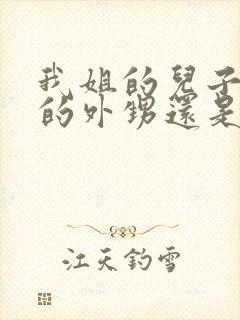 我姐的兒子
的外甥還是
江天釣雪